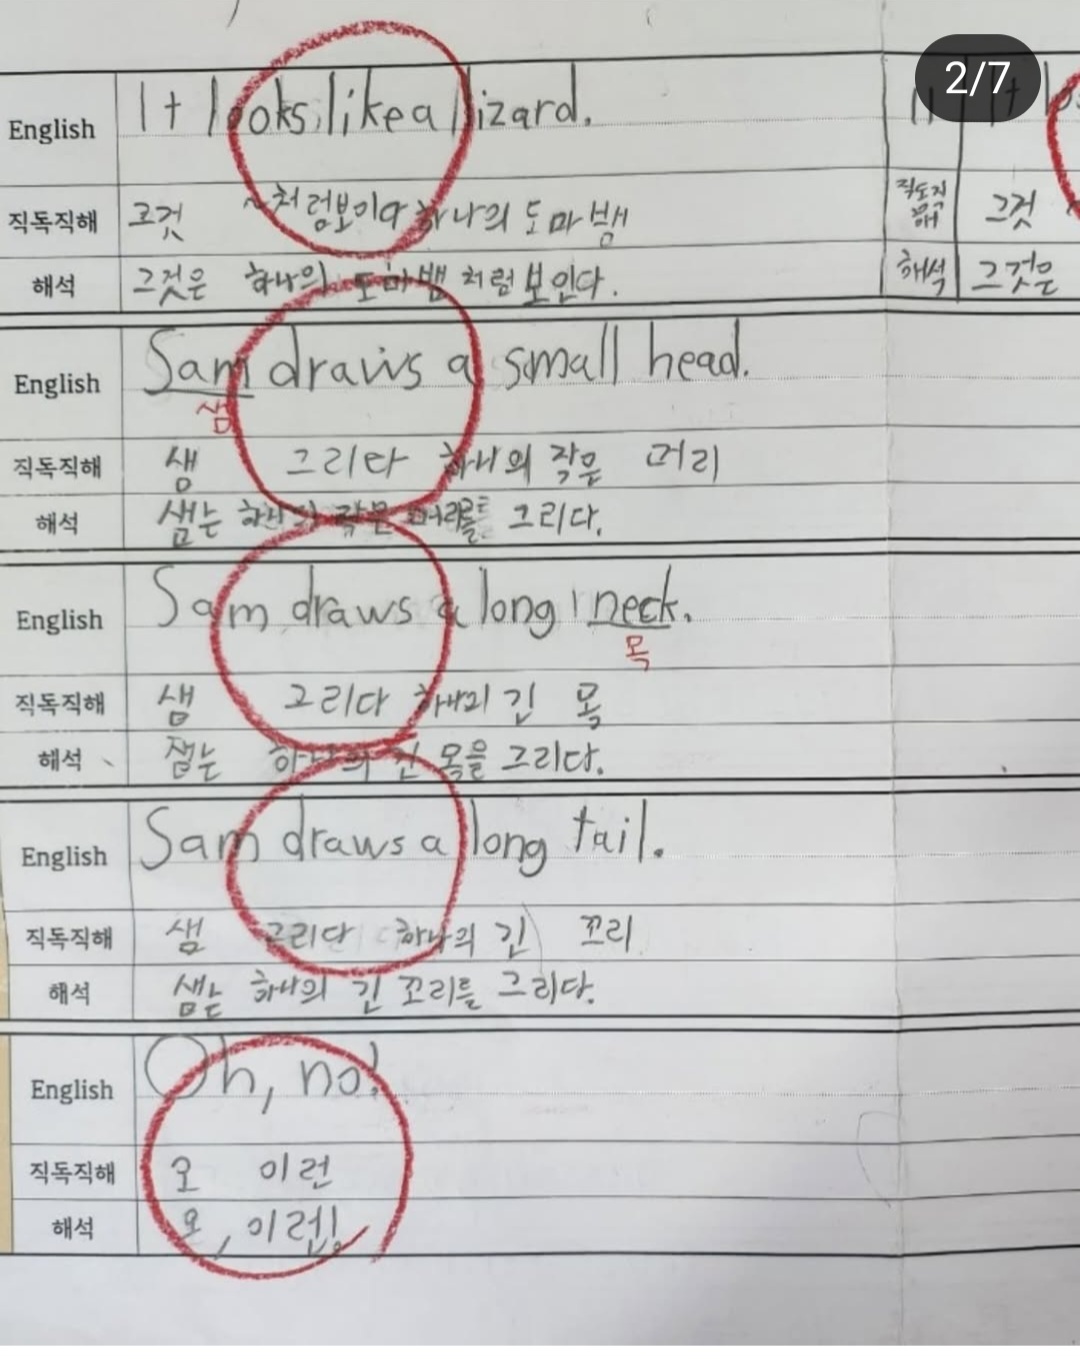 2/7
English It looks like a lizard.
직독직해 그것 ~처럼보이다 하나의 도마뱀
해석 그것은 하나의 도마뱀 처럼 보인다.
English Sam draws a small head.
샘
직독직해 샘 그리다 하나의 작은 머리
해석 샘는 하나의 작은 머리를 그리다.
English Sam draws a long neck.
목
직독직해 샘 그리다 하나의 긴 목
해석 샘는 하나의 긴 목을 그리다.
English Sam draws a long tail.
직독직해 샘 그리다 하나의 긴 꼬리
해석 샘는 하나의 긴 꼬리를 그리다.
English Oh, no!
직독직해 오 이런
해석 오, 이런!
It
직독직해 그것
해석 그것은